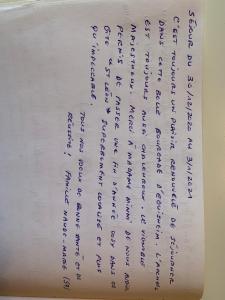 SÉJOUR DU 30/12/2020 AU 3/1/2021
C'EST TOUJOURS UN PLAISIR RENOUVELÉ DE SÉJOURNER
DANS CETTE BELLE BOURGADE D'EGUISHEIM. L'ACCUEIL
EST TOUJOURS AUSSI CHALEUREUX. LE VIGNOBLE
MAJESTUEUX. MERCI À MADAME MINNI DE NOUS AVOIR
PERMIS DE PASSER UNE FIN D'ANNÉE COSY DANS CE
GÎTE "ST LÉON" SUPERBEMENT LOCALISÉ ET PLUS
QU'IMPECCABLE.
TOUS NOS VOEUX DE BONNE SANTÉ ET DE
RÉUSSITE! FAMILLE